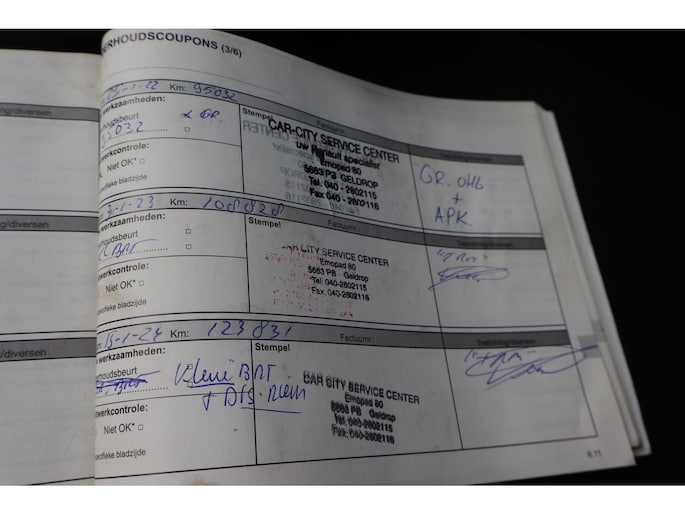 ERHOUDSCOUPONS (3/6)
ng/diversen
25-1-22 Km: 95032
werkzaamheden:
houdsbeurt x GR.
Stempel Factuurnr.:
CAR-CITY SERVICE CENTER
uw Renault specialist
Emopad 80
5663 PB GELDROP
Tel. 040 - 2802115
Fax. 040 - 2802116
GR. OHB
+
APK.
werkcontrole:
Niet OK*
specifieke bladzijde
30-1-23 108828
werkzaamheden:
houdsbeurt
Stempel
CAR CITY SERVICE CENTER
Emopad 80
5663 PB Geldrop
Tel: 040-2802115
Fax: 040-2802116
g/diversen
werkcontrole:
Niet OK*
specifieke bladzijde
15-1-24 Km: 123831
werkzaamheden:
houdsbeurt
Stempel Factuurnr.: Toelichting/diversen
BRT
CAR CITY SERVICE CENTER
Emopad 80
5663 PB Geldrop
Tel: 040-2802115
Fax: 040-2802116
g/diversen
werkcontrole:
Niet OK*
specifieke bladzijde
6.11